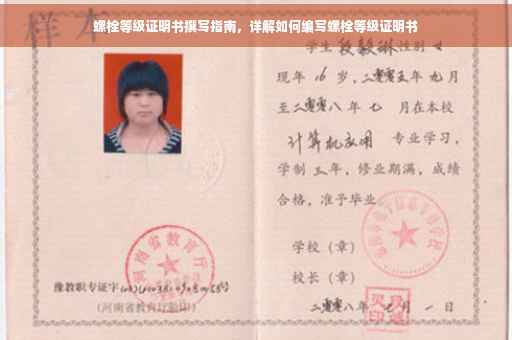 螺栓等级证明书撰写指南，详解如何编写螺栓等级证明书
样本
学生段毅琳性别女
现年16岁，二零零五年九月
至二零零八年七月在本校
计算机应用 专业学习，
学制三年，修业期满，成绩
合格，准予毕业
学校（章）
校长（章）
二零零八年七月一日
河南省教育厅
豫教职专证字
（河南省教育厅验印）